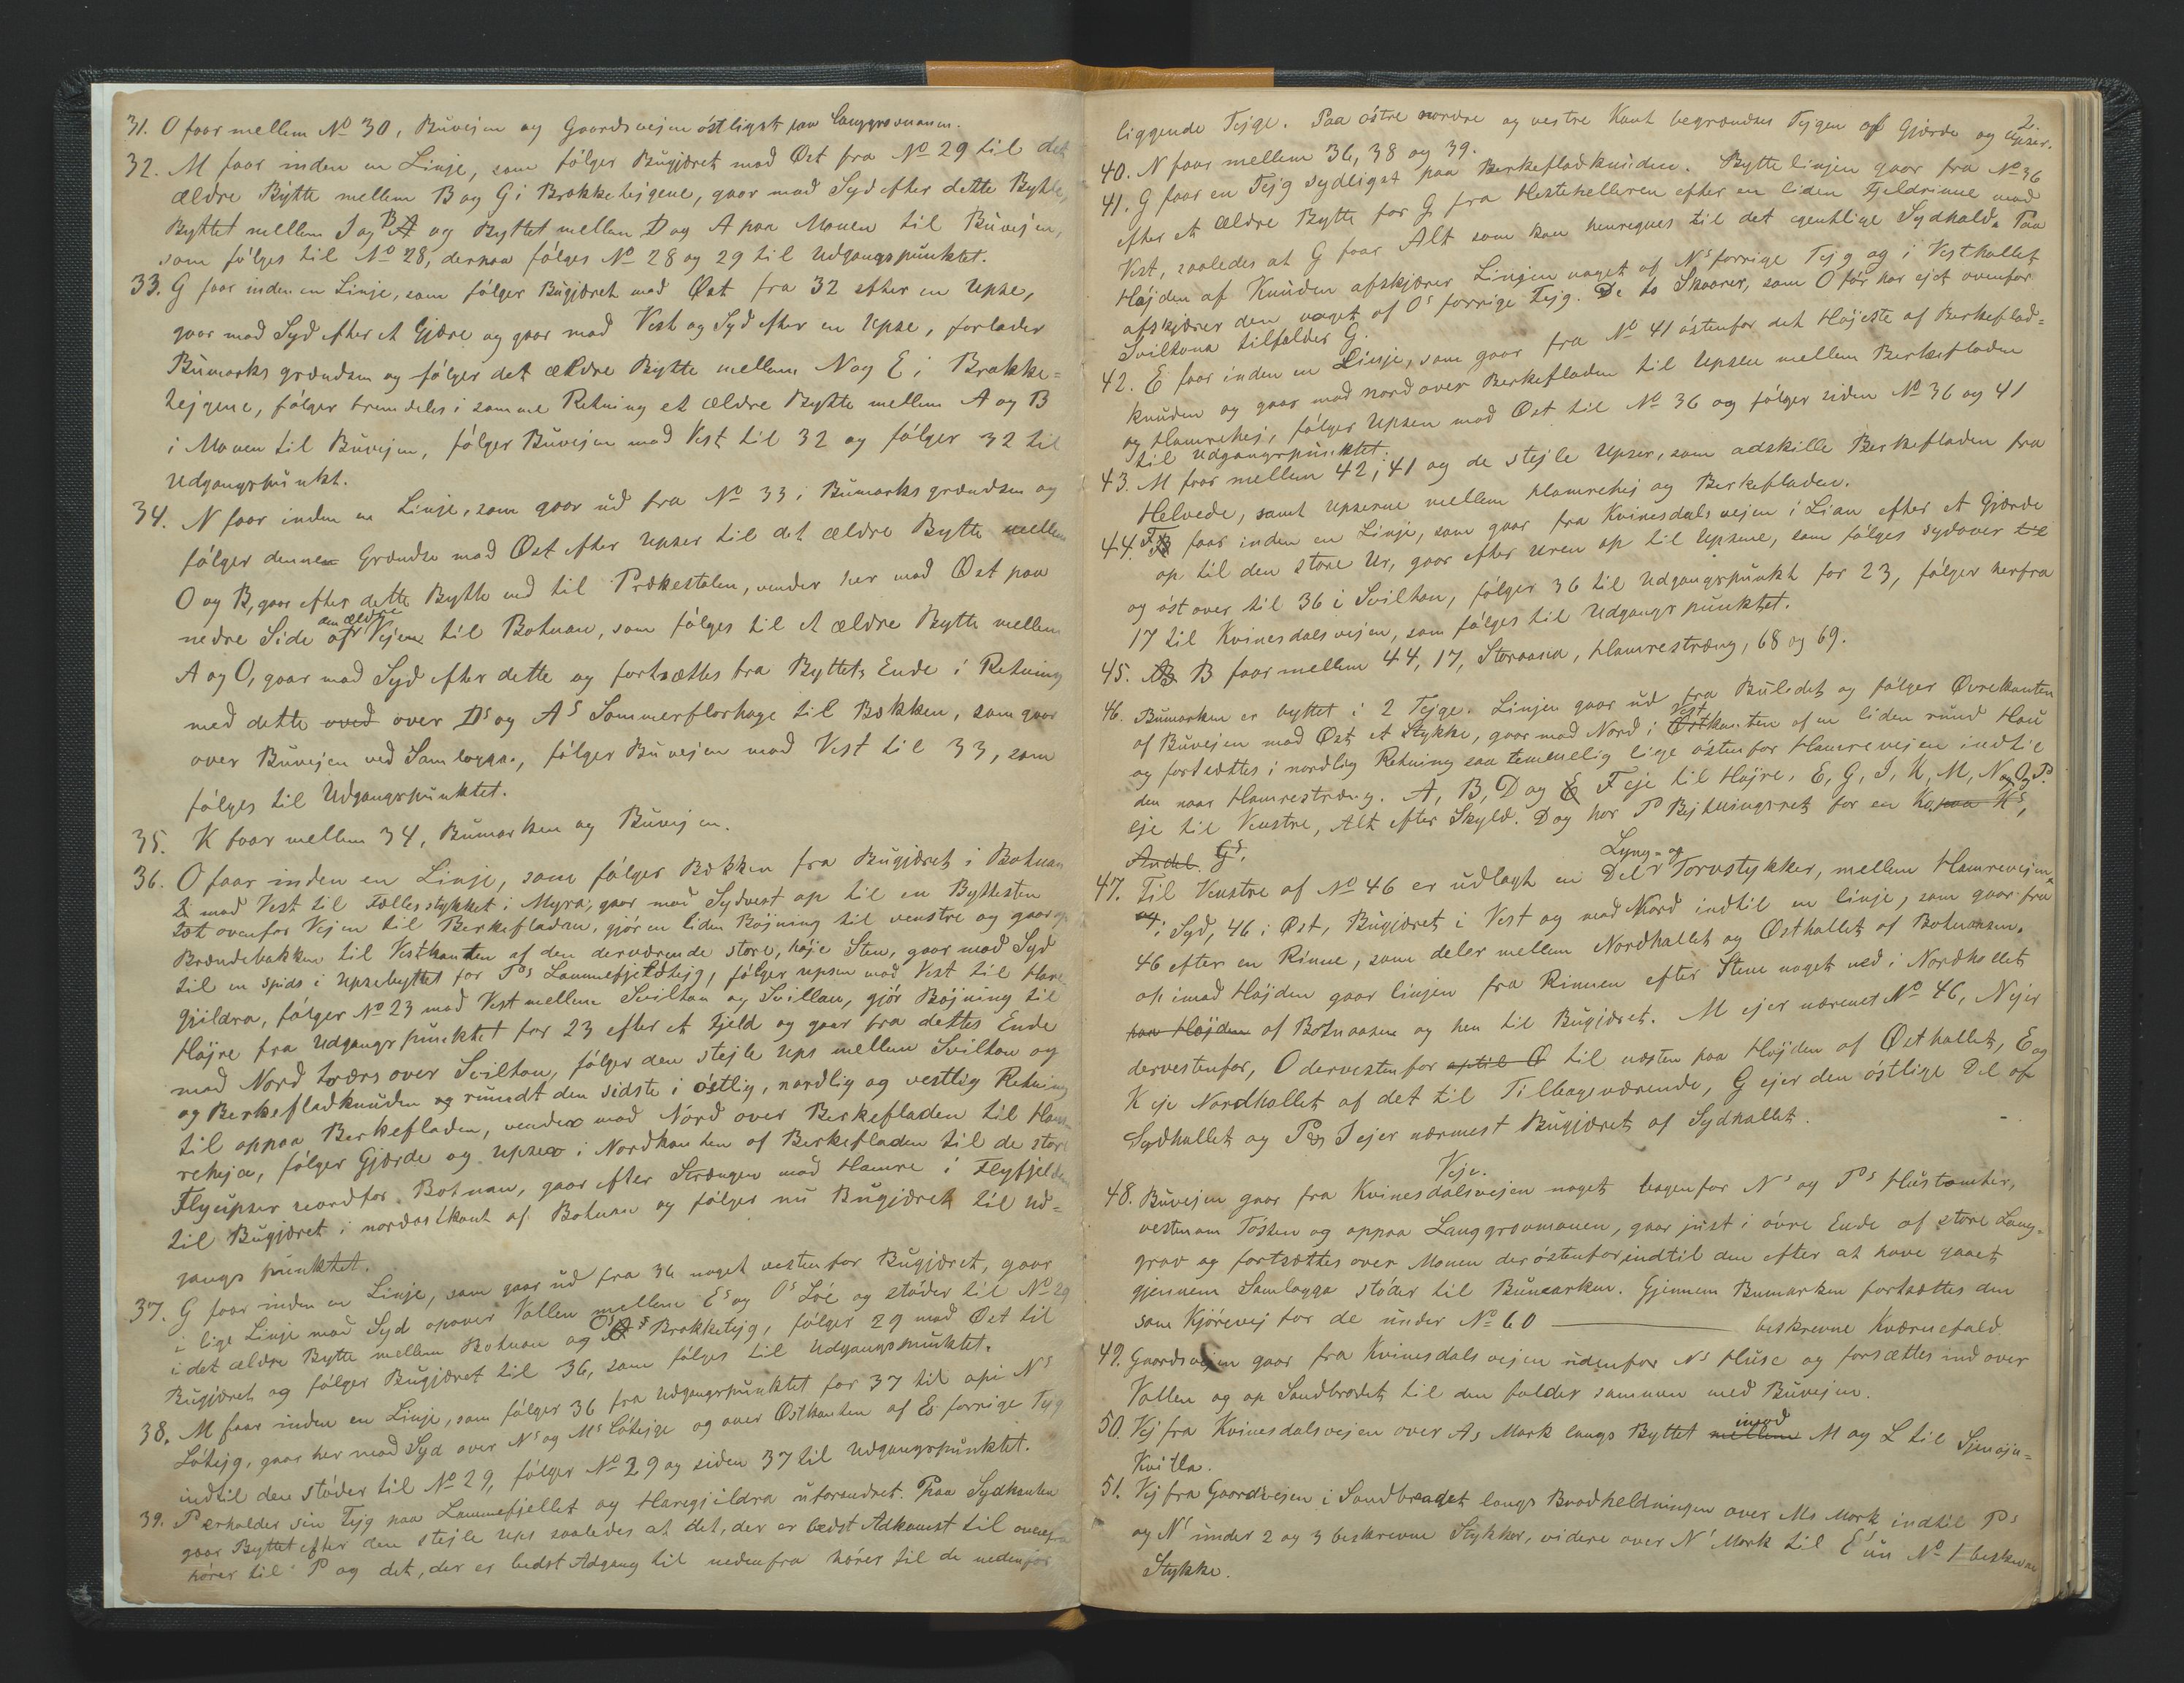 31. O faar mellem No 30, Buvejen og Gaardsvejen östligst paa Langgrovmanen.
32. M faar inden en Linje, som følger Bugjæret mod Øst fra No 29 til det
ældre Bytte mellem B og G i Brakketejgene, gaar mod Syd efter dette Bytte,
Byttet mellem I og B og Byttet mellem D og A paa Monen til Buvejen,
som følges til No 28, derpaa følges No 28 og 29 til Udgangspunktet.
33. G faar inden en Linje, som følger Bugjæret mod Øst fra 32 efter en Upse,
gaar mod Syd efter et Gjære og gaar mod Vest og Syd efter en Upse, forlader
Bumarks grændsen og følger det ældre Bytte mellem N og E i Brakke=
tejgene, følger fremdeles i samme Retning et ældre Bytte mellem A og B
i Monen til Buvejen, følger Buvejen mod Vest til 32 og følger 32 til
Udgangspunkt.
34. N faar inden en Linje, som gaar ud fra No 33 i Bumarks grændsen og
følger denne Grændse mod Øst efter Upser til det ældre Bytte mellem
O og B, gaar efter dette Bytte ned til Prækestolen, vender her mod Øst paa
nedre Side af den ældre Vejen til Botnan, som følges til et ældre Bytte mellem
A og O, gaar mod Syd efter dette og fortsættes fra Byttets Ende i Retning
med dette oved over Ds og As Sommerflorhage til Bækken, som gaar
over Buvejen ved Samlogga, følger Buvejen mod Vest til 33, som
følges til Udgangspunktet.
35. K faar mellem 34, Bumarken og Buvejen.
36. O faar inden en Linje, som følger Bækken fra Bugjæret i Botnan
mod Vest til Fællesstykket i Myra, gaar mod Sydvest op til en Byttesten
tæt ovenfor Vejen til Berkefladen, gjör en liden Böjning til venstre og gaar op
Brændebakken til Vestkanten af den derværende store, høje Sten, gaar mod Syd
til en spids i Upsebyttet for Ps Lammefjeldtejg, følger upsen mod Vest til Hare
gjildra, følger No 23 mod Vest mellem Sviltan og Svillan, gjör Böjning til
Højre fra Udgangspunktet for 23 efter et Fjeld og gaar fra dettes Ende
mod Nord tværs over Sviltan, følger den stejle Ups mellem Sviltan og
og Berkefladknuden og rundt den sidste i östlig, nordlig og vestlig Retning
til oppaa Berkefladen, vender mod Nord over Berkefladen til Ham
reheja, følger Gjærde og Upser i Nordkanten af Berkefladen til de store
Flyupser nordfor Botnan, gaar efter Strængen mod Hamre i Flyfjeldene
til Bugjæret i nordostkant af Botnan og følger nu Bugjæret til Ud=
gangs punktet.
37. G faar inden en Linje, som gaar ud fra 36 noget vestenfor Bugjæret, gaar
i lige Linje mod Syd opover Vollen mellem Es og Os Löe og stöder til No 29
i det ældre Bytte mellem Botnan og Os Brakketejg, følger 29 mod Øst til
Bugjæret og følger Bugjæret til 36, som følges til Udgangspunktet.
38. M faar inden en Linje, som følger 36 fra Udgangspunktet for 37 til opi Ns
Lötejg, gaar her mod Syd over Ns og Ms Lötejge og over Østkanten af Es forrige Tejg
indtil den stöder til No 29, følger No 29 og siden 37 til Udgangspunktet.
39. P erholder sin Tejg paa Lammefjellet og Haregjildra uforandret. Paa Sydkanten
gaar Byttet efter den stejle Ups saaledes at det, der er bedst Adkomst til ovenfra
hörer til P og det, der er bedst Adgang til nedenfra hörer til de nedenfor
2.
liggende Tejge. Paa östre nordre og vestre Kant begrændses Tejgen af Gjærde og Upser.
40. N faar mellem 36, 38 og 39.
41. G faar en Tejg sydligst paa Berkefladknuden. Byttelinjen gaar fra No 36
efter et ældre Bytte for G fra Hestehelleren efter en liden Fjeldrinne mod
Vest, saaledes at G faar Alt som kan henregnes til det egentlige Sydhald. Paa
Højden af Knuden afskjærer Linjen noget af Ns forrige Tejg og i Vesthallet
afskjærer den noget af Os forrige Tejg. De to Skaarer, som O för har ejet ovenfor
Sviltona tilfalder G.
42. E faar inden en Linje, som gaar fra No 41 östenfor det Højeste af Berkeflad=
knuden og gaar mod nord over Berkefladen til Upsen mellem Berkefladen
og Hamrehej, følger Upsen mod Øst til No 36 og følger siden No 36 og 41
til Udgangspunktet.
43. M faar mellem 42, 41 og de stejle Upser, som adskille Berkefladen fra
Helvede, samt Upserne mellem Hamrehej og Berkefladen.
44. F faar inden en Linje, som gaar fra Kvinesdalsvejen i Lian efter et Gjærde
op til den store Ur, gaar efter Uren op til Upsene, som følges sydover til
og östover til 36 i Sviltan, følger 36 til Udgangspunkt for 23, følger herfra
17 til Kvinesdalsvejen, som følges til Udgangspunktet.
45. B faar mellem 44, 17, Storaana, Hamrestræng, 68 og 69.
46. Bumarken er byttet i 2 Tejge. Linjen gaar ud fra Buledet og følger Øvrekanten
af Buvejen mod Øst et Stykke, gaar mod Nord i Vestkanten af en liden rund Hau
og fortsættes i nordlig Retning saa temmelig lige östenfor Hamrevejen indtil
den naar Hamrestræng. A, B, D og F eje til Højre, E, G, I, K, M, N og O og P
eje til Venstre, Alt efter Skyld. Dog har P Bejtningsret for en Ko paa Ks,
Andel. Gs.
47. Til Venstre af No 46 er udlagt en Del Lyng- og Torvstykker, mellem Hamrevejen
i Syd, 46 i Øst, Bugjæret i Vest og mod Nord indtil en linje, som gaar fra
46 efter en Rinne, som deler mellem Nordhallet og Østhallet af Botnaasen.
op imod Højden gaar linjen fra Rinnen efter Stene noget ned i Nordhallet
paa Højden af Botnaasen og hen til Bugjæret. M ejer nærmest No 46, N ejer
dervestenfor, O dervestenfor optil O til næsten paa Højden af Østhallet, E og
K eje Nordhallet af det til Tilbageværende, G ejer den östlige Del af
Sydhallet og P og I ejer nærmest Bugjæret af Sydhallet.
Veje.
48. Buvejen gaar fra Kvinesdalsvejen noget bagenfor Ns og Ps Hustomter,
vestenom Tösten og oppaa Langgrovmonen, gaar just i övre Ende af store Lang-
grov og fortsættes over Monen deröstenfor indtil den efter at have gaaet
gjennem Samlogga stöder til Bumarken. Gjennem Bumarken fortsættes den
som Kjörevej for de under No 60 ———— beskrevne Kværnefald.
49. Gaardsvejen gaar fra Kvinesdalsvejen udenfor Ns Huse og forsættes ind over
Vollen og op Sandbrodet til den falder sammen med Buvejen.
50. Vej fra Kvinesdalsvejen over As Mark langs Byttet mellem imod M og L til
Kvitla.
51. Vej fra Gaardvejen i Sandbraadet langs Bradheldningen over Ms Mark indtil Ps
og Ns under 2 og 3 beskrevne Stykker, videre over Ns Mark til Es un No 1 beskrevne
Stykke.